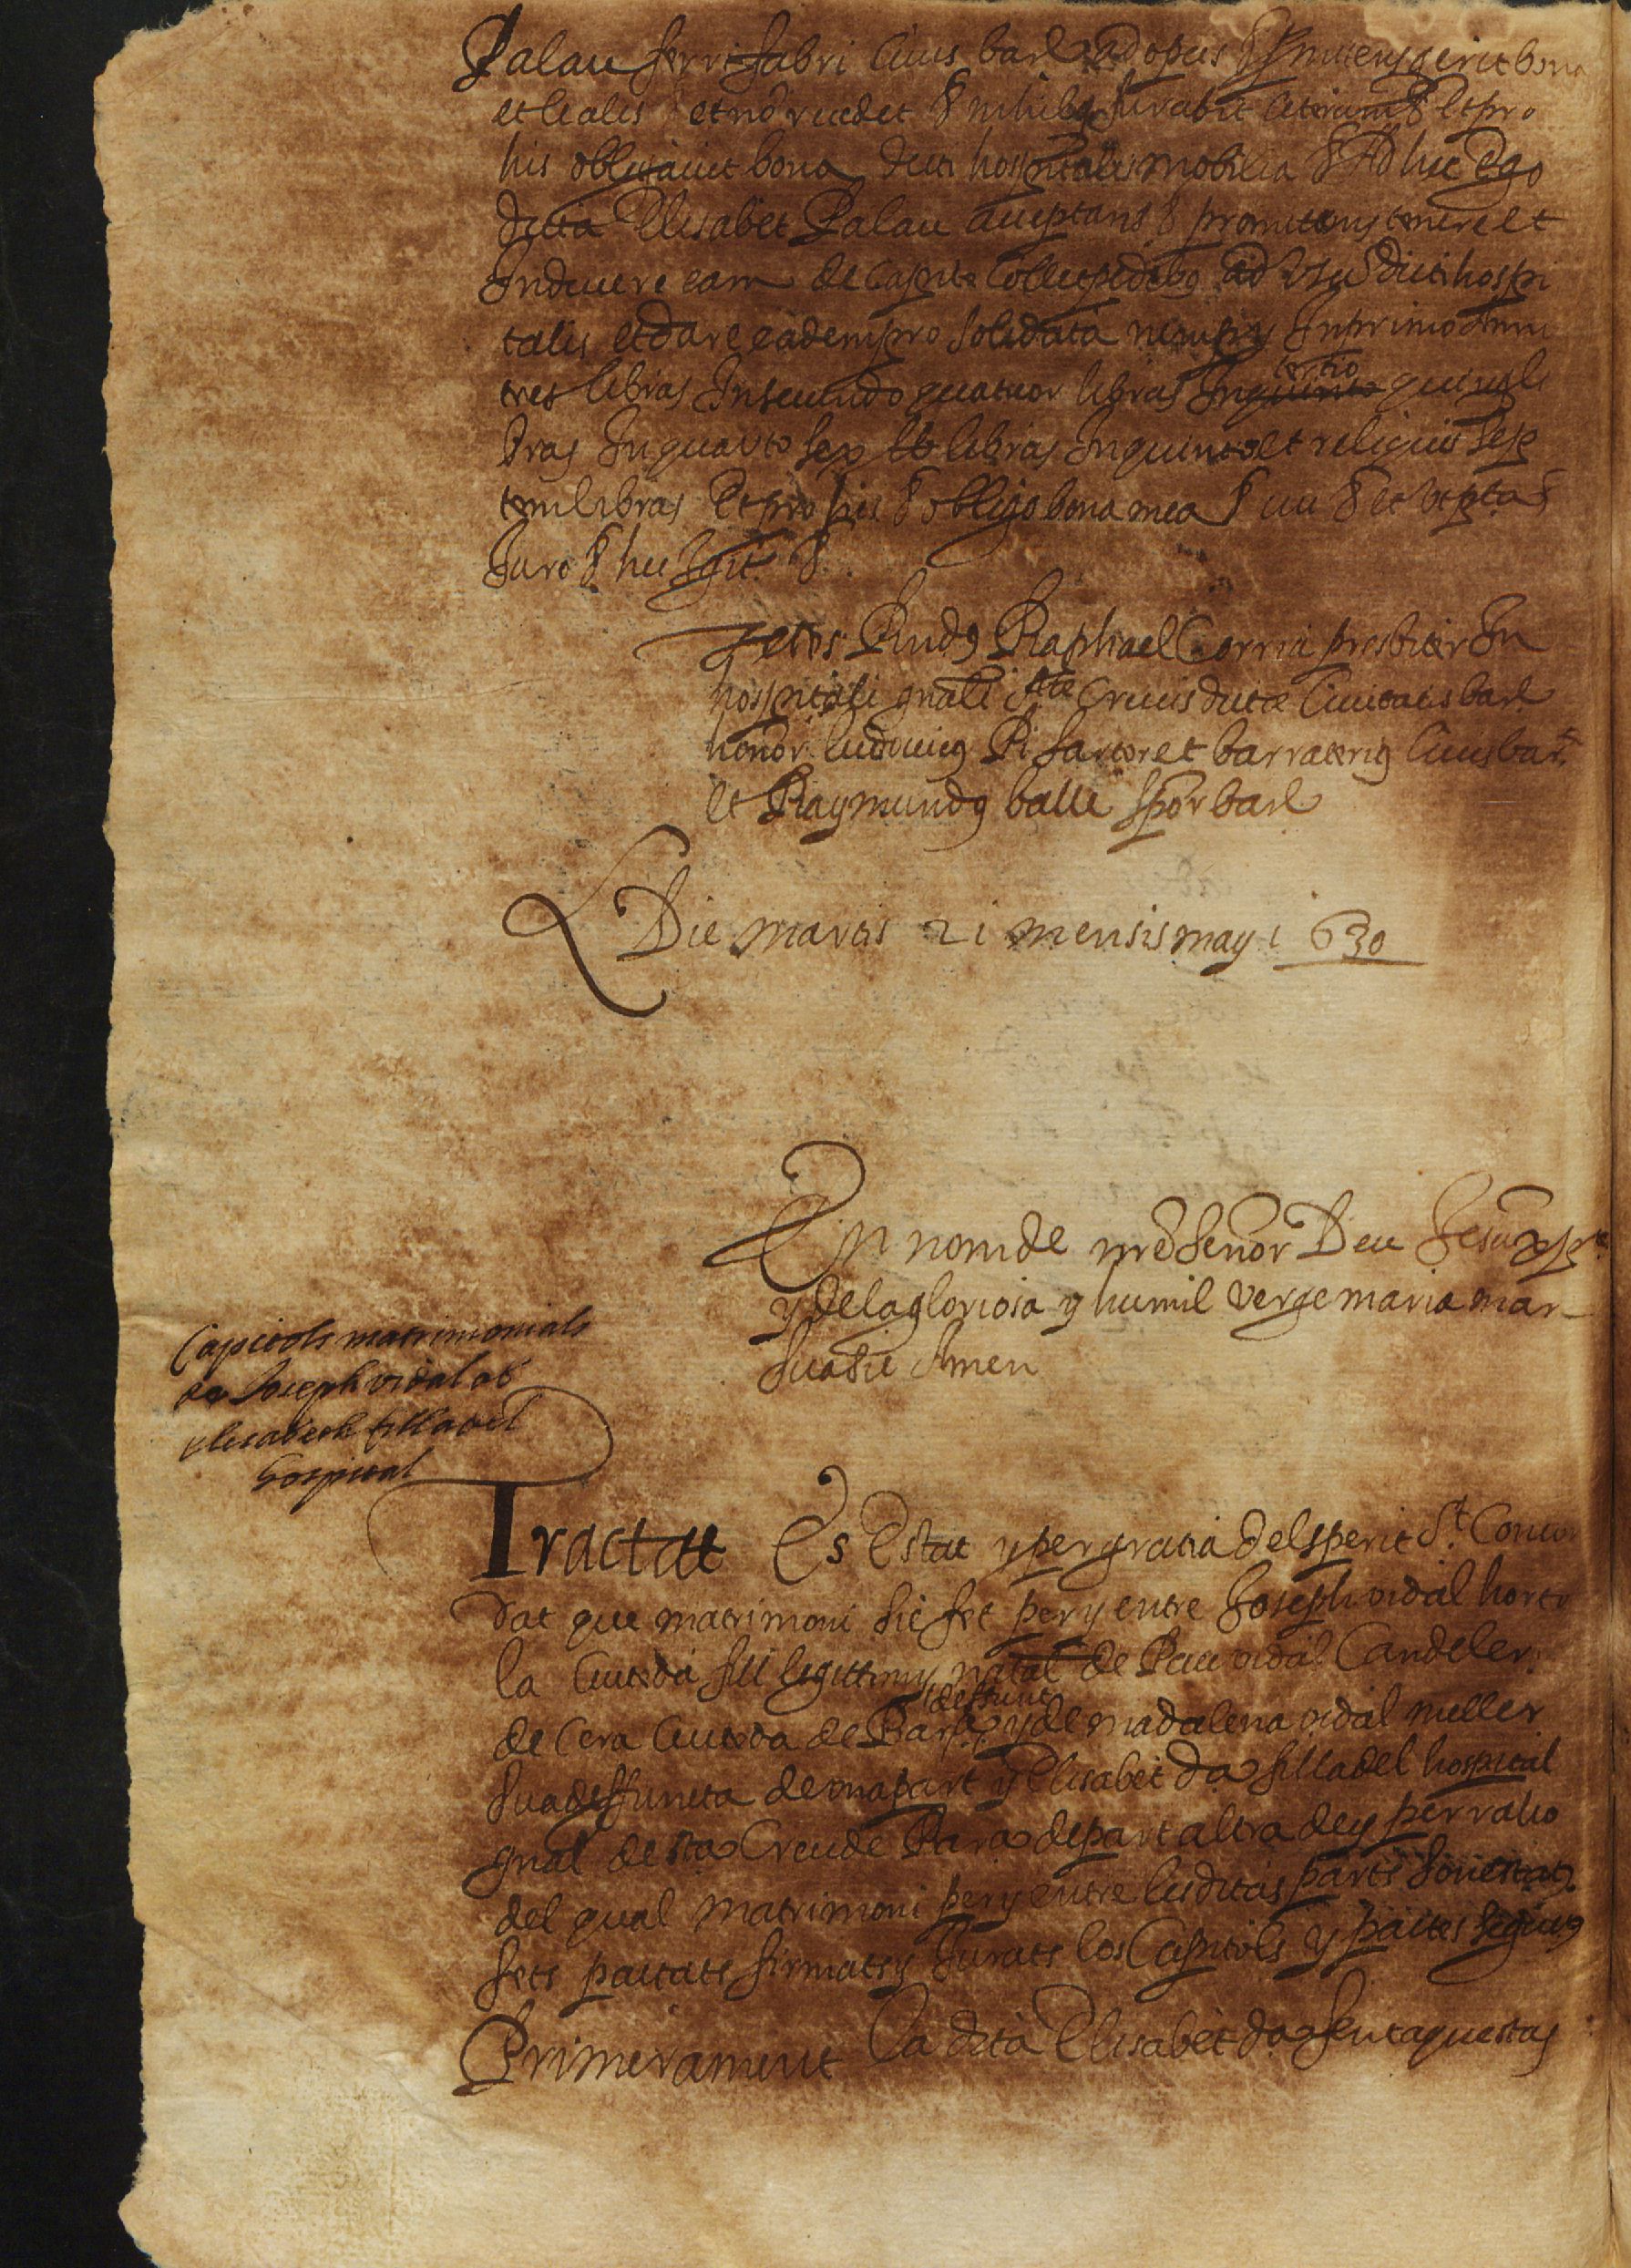 Palau ferri fabri Civis bar. ad opus & promitens q erit bona
et lealis et no recedet & nihilq furabit &
his obligavit bona dicti hospitalis mobilia & Ad hec Ego
dicta Elisabet Palau acceptans & promittens tenere et
Induere eam de capite ad usu dicti hospi
talis et dare eadem pro solidata nempe In primo anno
tres libras In secundo quatuor libras In quinto tertio quinq li
bras In quarto sex lb libras In quinto et reliquis sep
tem libras Et pro his & obligo bona mea &
Juro & hec igit &
Testes Rnds Raphael Corria presbiter In
hospitali gnali Stæ Crucis dictæ Civitatis bar.
honor. ludovicus Pi sartor et barraterius Civis bar.
et Raymundus balle spor bar
Die martis 21 mensis may 1630
En nom de nre Senor Deu Jesu xpt
y de la gloriosa y humil verge maria mar
sua sie Amen
Capitols matrimonials
de Joseph vidal ab
elisabeth filla del
hospital
Tractat Es Estat y per gratia del sperit St. Concor
dat que matrimoni sie fet per y entre Joseph vidal horto
la Ciutada fill legittim y natal de Pau vidal Candeler
de Cera Ciutada de Bar.a deffunct y de madalena vidal muller
sua deffuncta de una part y Elisabet Da filla del hospital
gnal de sta Creu de Bar.a de part altra de y per raho
del qual matrimoni per y entre les ditas parts son estats
fets pactats firmats y Jurats los Capitols y pactes seguents
Primerament la dita Elisabet da fent aquestas